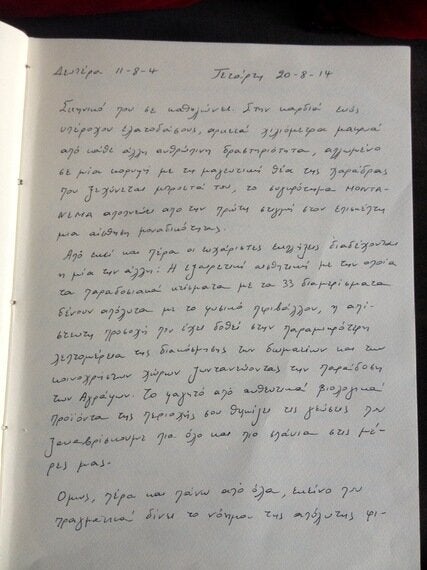 Δευτέρα 11-8-4 Τετάρτη 20-8-14
Σκηνικό που σε καθηλώνει. Στην καρδιά ενός
υπέροχου ελατοδάσους, αρκετά χιλιόμετρα μακρυά
από κάθε άλλη ανθρώπινη δραστηριότητα, απλωμένο
σε μία κορυφή με τη μαγευτική θέα της χαράδρας
που ξεχύνεται μπροστά του, το συγκρότημα MONTA-
NEMA αποπνέει από την πρώτη στιγμή στον επισκέπτη
μια αίσθηση μοναδικότητας.
Από εκεί και πέρα οι ευχάριστες εκπλήξεις διαδέχονται
η μία την άλλη: Η εξαιρετική αισθητική με την οποία
τα παραδοσιακά κτίσματα με τα 33 διαμερίσματα
δένουν απόλυτα με το φυσικό περιβάλλον, η απί-
στευτη προσοχή που έχει δοθεί στην παραμικρότερη
λεπτομέρεια της διακόσμησης των δωματίων και των
κοινοχρήστων χώρων ζωντανεύοντας την παράδοση
των Αγράφων. Το φαγητό από αυθεντικά βιολογικά
προϊόντα της περιοχής σου θυμίζει τις γεύσεις που
ξαναβρίσκουμε πια όλο και πιο σπάνια στις μέ-
ρες μας.
Όμως, πέρα και πάνω από όλα, εκείνο που
πραγματικά δίνει το νόημα της απόλυτης φι-